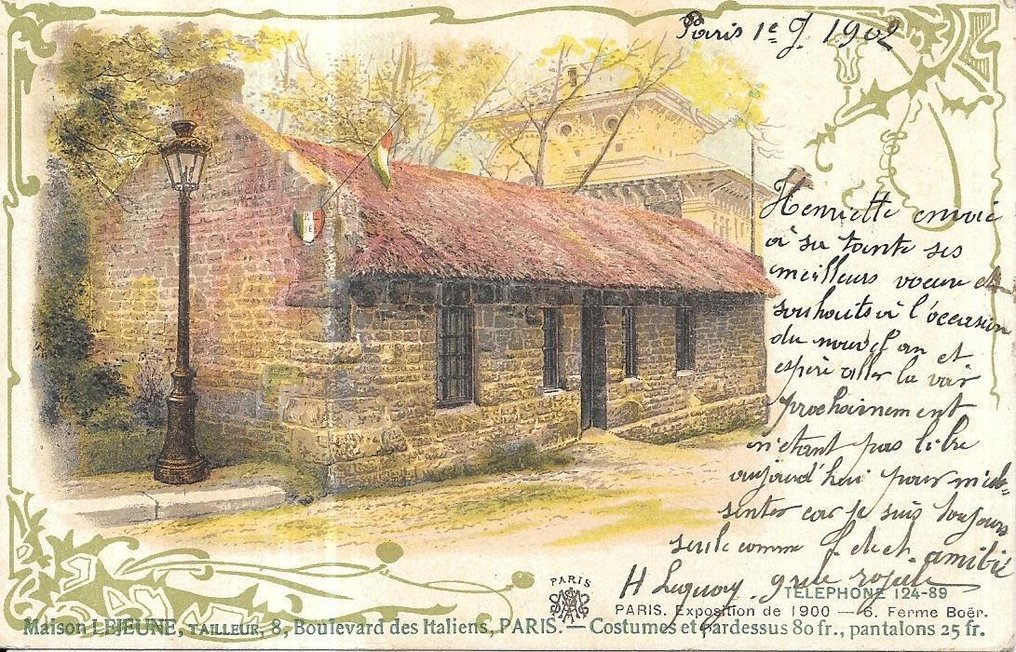 Paris 1e J. 1902
Henriette envoie
à sa tante ses
meilleurs voeux et
souhaits à l'occasion
du nouvel an et
espère aller la voir
prochainement
n'étant pas libre
aujourd'hui pour m'ab-
senter car je suis toujours
seule comme amitié
H
R F
PARIS
TÉLÉPHONE 124-89
PARIS. Exposition de 1900 — 6. Ferme Boër.
Maison LEJEUNE, TAILLEUR, 8, Boulevard des Italiens, PARIS. — Costumes et pardessus 80 fr., pantalons 25 fr.